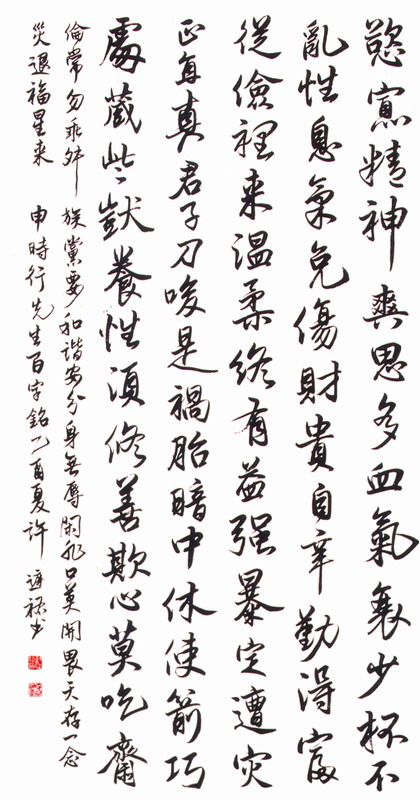 慾寡精神爽思多血氣衰少杯不
亂性息氣免傷財貴自辛勤得富
從儉裡来温柔終有益强暴定遭灾
正直真君子刁唆是禍胎暗中休使箭巧
處藏些獃養性須修善欺心莫吃齋
倫常勿乖舛族黨要和諧安分身無辱閑非口莫開畏天存一念
災退福星来 申時行先生百字銘乙酉夏許書